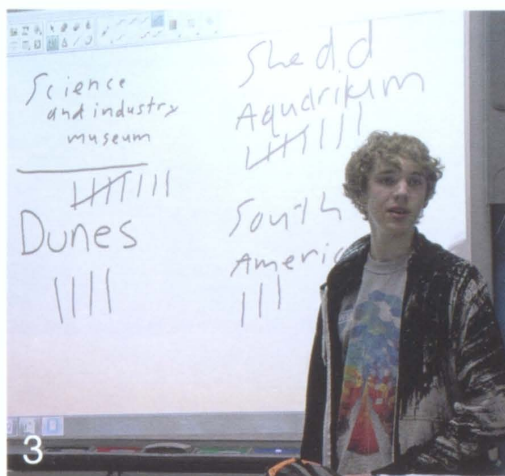 Science
and industry
museum
Dunes
Shedd
Aquarikum
South
Americ
3